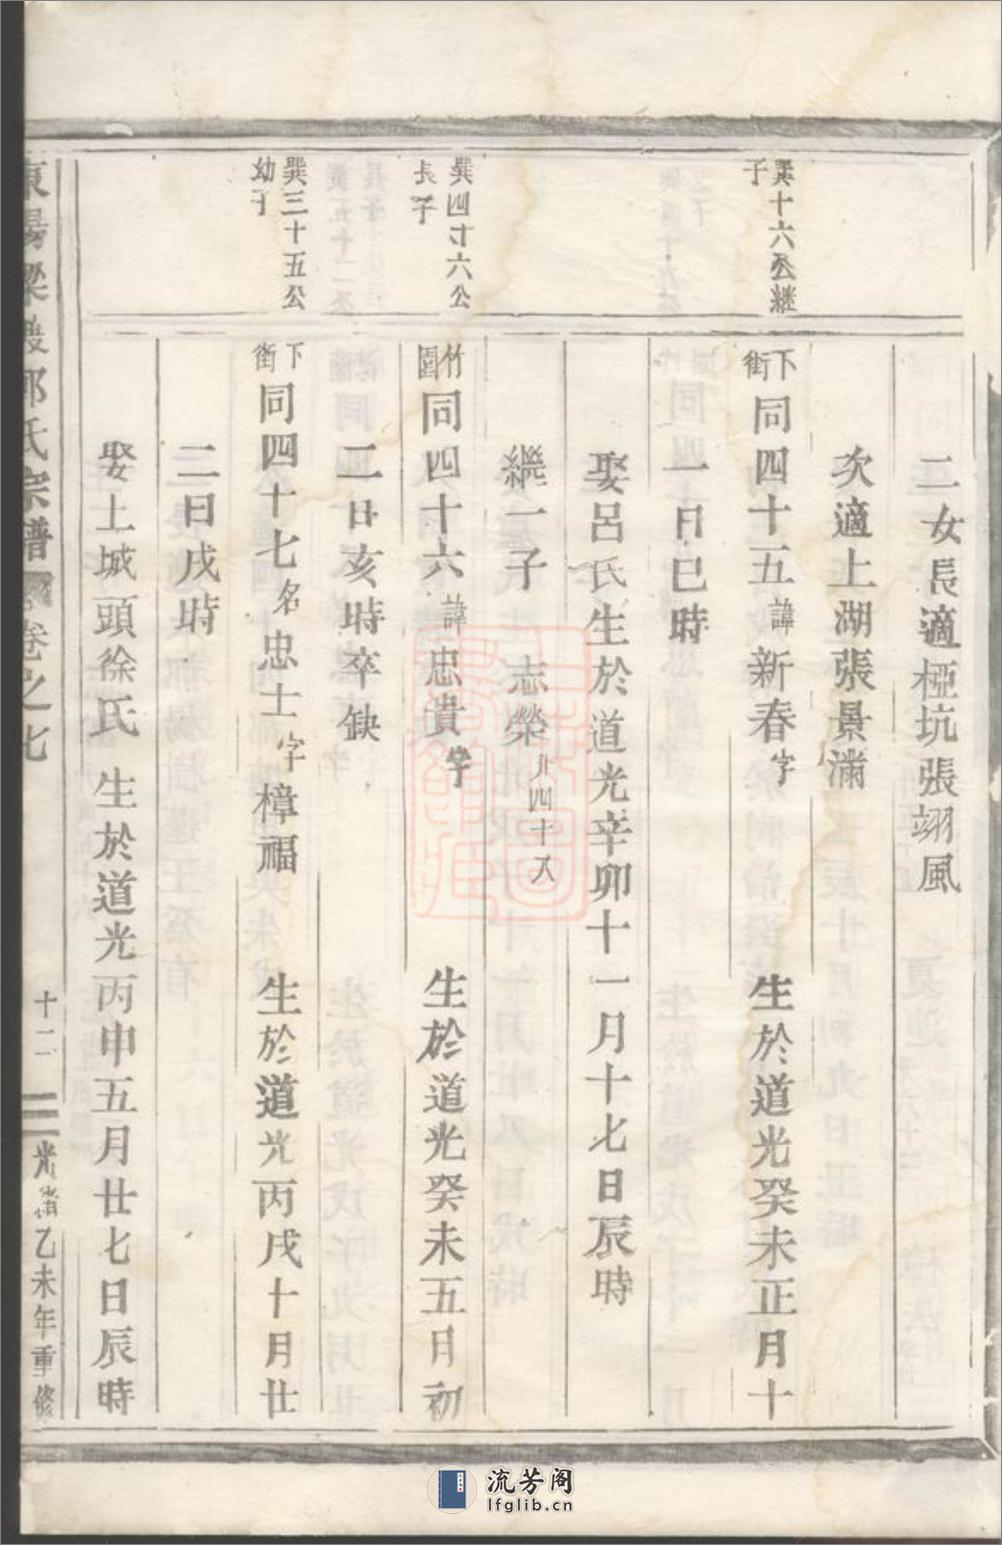 二女長適椏坑張翊風
次適上湖張景滿
巽十六公継
子
下街
同四十五諱新春字 生於道光癸未正月十
一日巳時
娶呂氏生於道光辛卯十一月十七日辰時
繼一子 志榮廾四十八
巽四十六公
長子
竹園
同四十六諱忠貴字 生於道光癸未五月初
二日亥時卒缺
巽三十五公
幼子
下街
同四十七名忠士字樟福 生於道光丙戌十月廿
二日戌時
娶上城頭徐氏 生於道光丙申五月廿七日辰時
東陽梁渡郭氏宗譜 卷之七
十二
光緒乙未年重修
流芳阁
lfglib.cn